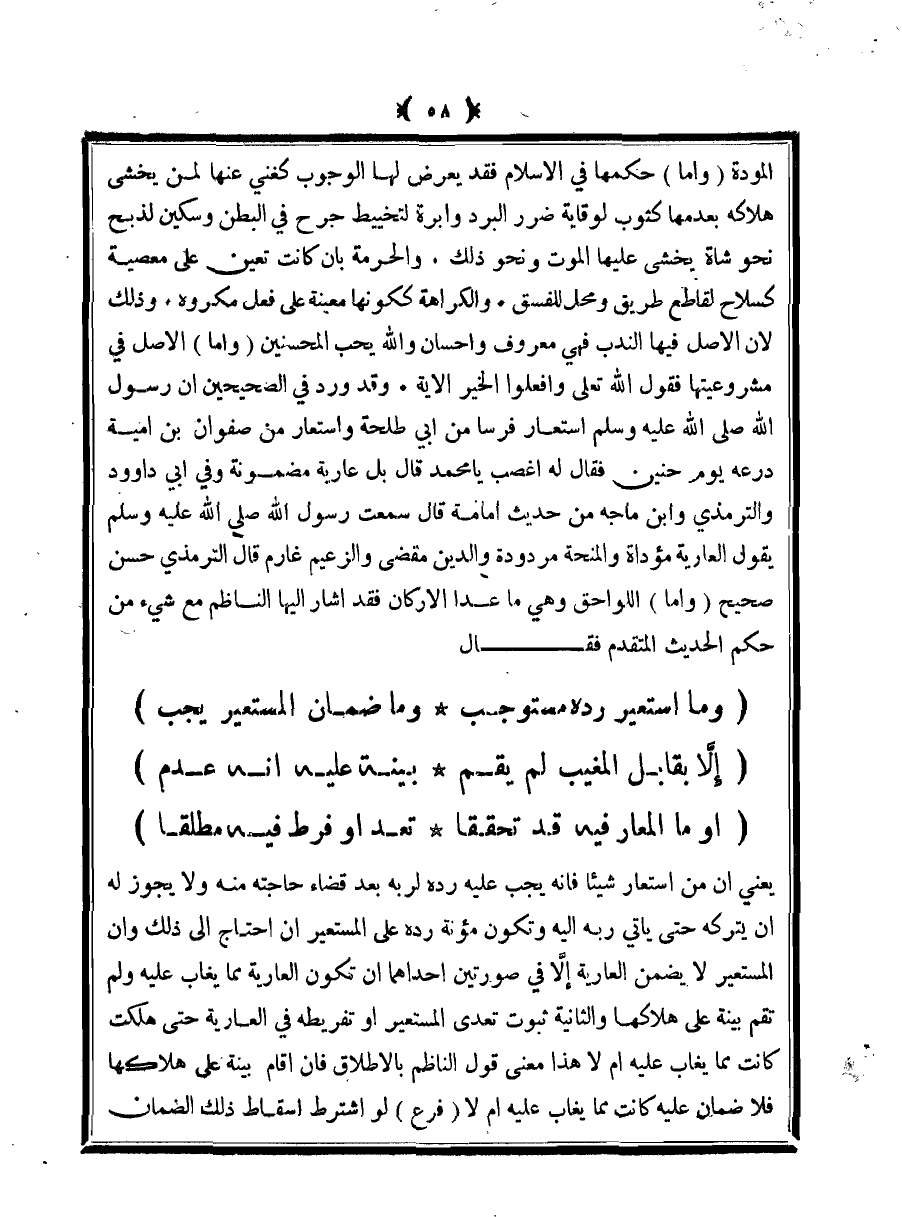 ﴿ ٥٨ ﴾
المودة ( واما ) حكمها في الاسلام فقد يعرض لها الوجوب كغني عنها لمن يخشى
هلاكه بعدمها كثوب لوقاية ضرر البرد وابرة لتخييط جرح في البطن وسكين لذبح
نحو شاة يخشى عليها الموت ونحو ذلك . والحرمة بان كانت تعين على معصية
كسلاح لقاطع طريق ومحل للفسق . والكراهة ككونها معينة على فعل مكروه . وذلك
لان الاصل فيها الندب فهي معروف واحسان والله يحب المحسنين ( واما ) الاصل في
مشروعيتها فقول الله تعلى وافعلوا الخير الاية . وقد ورد في الصحيحين ان رسول
الله صلى الله عليه وسلم استعار فرسا من ابي طلحة واستعار من صفوان بن امية
درعه يوم حنين فقال له اغصب يامحمد قال بل عارية مضمونة وفي ابي داوود
والترمذي وابن ماجه من حديث امامة قال سمعت رسول الله صلى الله عليه وسلم
يقول العارية مؤداة والمنحة مردودة والدين مقضى والزعيم غارم قال الترمذي حسن
صحيح ( واما ) اللواحق وهي ما عدا الاركان فقد اشار اليها الناظم مع شيء من
حكم الحديث المتقدم فقال
( وما استعير رده مستوجب * وما ضمان المستعير يجب )
( إلّا بقابل المغيب لم يقم * بينة عليه انه عدم )
( او ما المعار فيه قد تحققا * تعد او فرط فيه مطلقا )
يعني ان من استعار شيئا فانه يجب عليه رده لربه بعد قضاء حاجته منه ولا يجوز له
ان يتركه حتى ياتي ربه اليه وتكون مؤنة رده على المستعير ان احتاج الى ذلك وان
المستعير لا يضمن العارية إلّا في صورتين احداهما ان تكون العارية مما يغاب عليه ولم
تقم بينة على هلاكها والثانية ثبوت تعدى المستعير او تفريطه في العارية حتى هلكت
كانت مما يغاب عليه ام لا هذا معنى قول الناظم بالاطلاق فان اقام بينة على هلاكها
فلا ضمان عليه كانت مما يغاب عليه ام لا ( فرع ) لو اشترط اسقاط ذلك الضمان